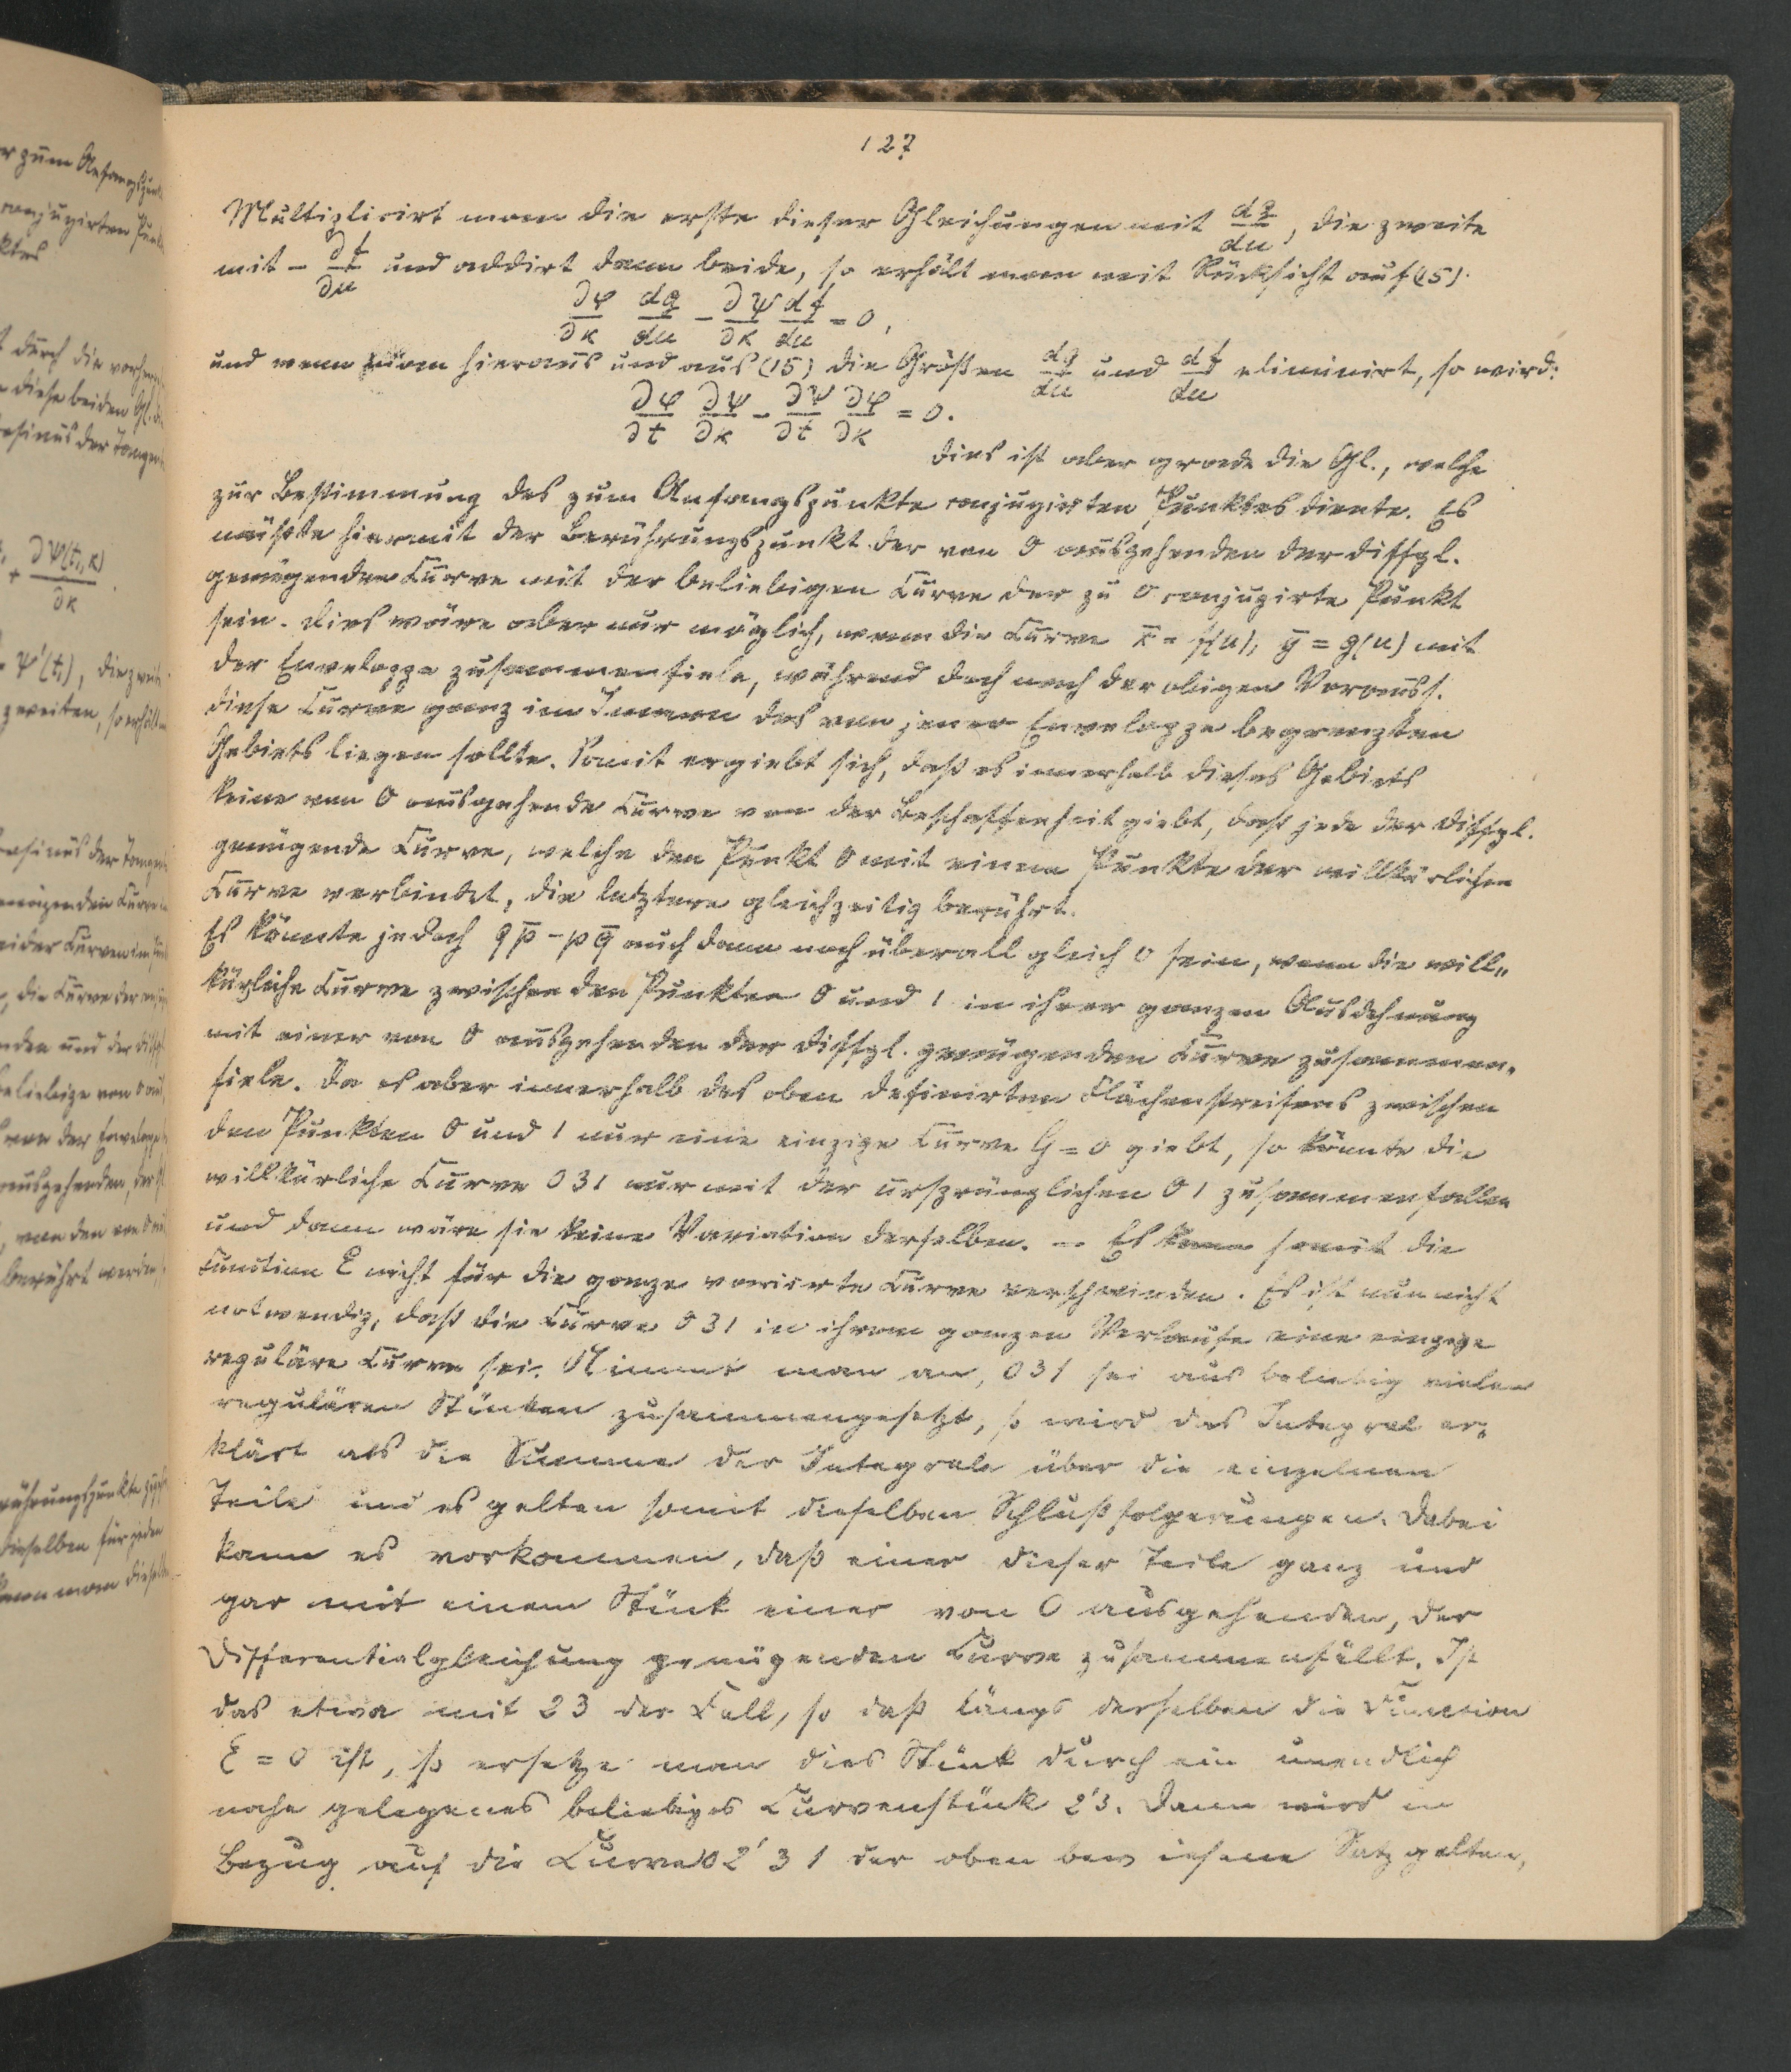 127
Multiplicirt man die erste dieser Gleichungen mit dg/du, die zweite
mit - ∂f/∂u und addirt dann beide, so erhält man mit Rücksicht auf (15).
∂φ/∂κ dg/du - ∂ψ/∂κ df/du = 0,
und wenn man hieraus und aus (15) die Größen dg/du und df/du eliminirt, so wird:
∂φ/∂t ∂ψ/∂κ - ∂ψ/∂t ∂φ/∂κ = 0.
Dies ist aber grade die Gl., welche
zur Bestimmung des zum Anfangspunkte conjugirten Punktes diente. Es
müßte hiermit der Berührungspunkt der von 0 ausgehenden der Diffgl.
genügenden Curve mit der beliebigen Curve der zu 0 conjugirte Punkt
sein. Dies wäre aber nur möglich, wenn die Curve x̄ = f(u), ȳ = g(u) mit
der Enveloppe zusammenfiele, während doch nach der obigen Vorauss.
diese Curve ganz im Innern des von jener Enveloppe begrenzten
Gebiets liegen sollte. Somit ergiebt sich, daß es innerhalb dieses Gebiets
keine von 0 ausgehende Curve von der Beschaffenheit giebt, daß jede der Diffgl.
genügende Curve, welche den Punkt 0 mit einem Punkte der willkürlichen
Curve verbindet, die letztere gleichzeitig berührt.
Es könnte jedoch q p̄ - p q̄ auch dann noch überall gleich 0 sein, wenn die will„
kürliche Curve zwischen den Punkten 0 und 1 in ihrer ganzen Ausdehnung
mit einer von 0 ausgehenden der Diffgl. genügenden Curve zusammen„
fiele. Da es aber innerhalb des oben definirten Flächenstreifens zwischen
den Punkten 0 und 1 nur eine einzige Curve G = 0 giebt, so könnte die
willkürliche Curve 031 nur mit der ursprünglichen 01 zusammenfallen
und dann wäre sie keine Variation derselben. — Es kann somit die
Function E nicht für die ganze variirte Curve verschwinden. Es ist nun nicht
notwendig, daß die Curve 031 in ihrem ganzen Verlaufe eine einzige
reguläre Curve sei. Nimmt man an, 031 sei aus beliebig vielen
regulären Stücken zusammengesetzt, so wird das Integral er„
klärt als die Summe der Integrale über die einzelnen
Teile und es gelten somit dieselben Schlußfolgerungen. Dabei
kann es vorkommen, daß einer dieser Teile ganz und
gar mit einem Stück einer von 0 ausgehenden, der
Differentialgleichung genügenden Curve zusammenfällt. Ist
das etwa mit 23 der Fall, so daß längs derselben die Function
E = 0 ist, so ersetze man dies Stück durch ein unendlich
nahe gelegenes beliebiges Curvenstück 2'3. Dann wird in
Bezug auf die Curve 02'31 der oben bewiesene Satz gelten,